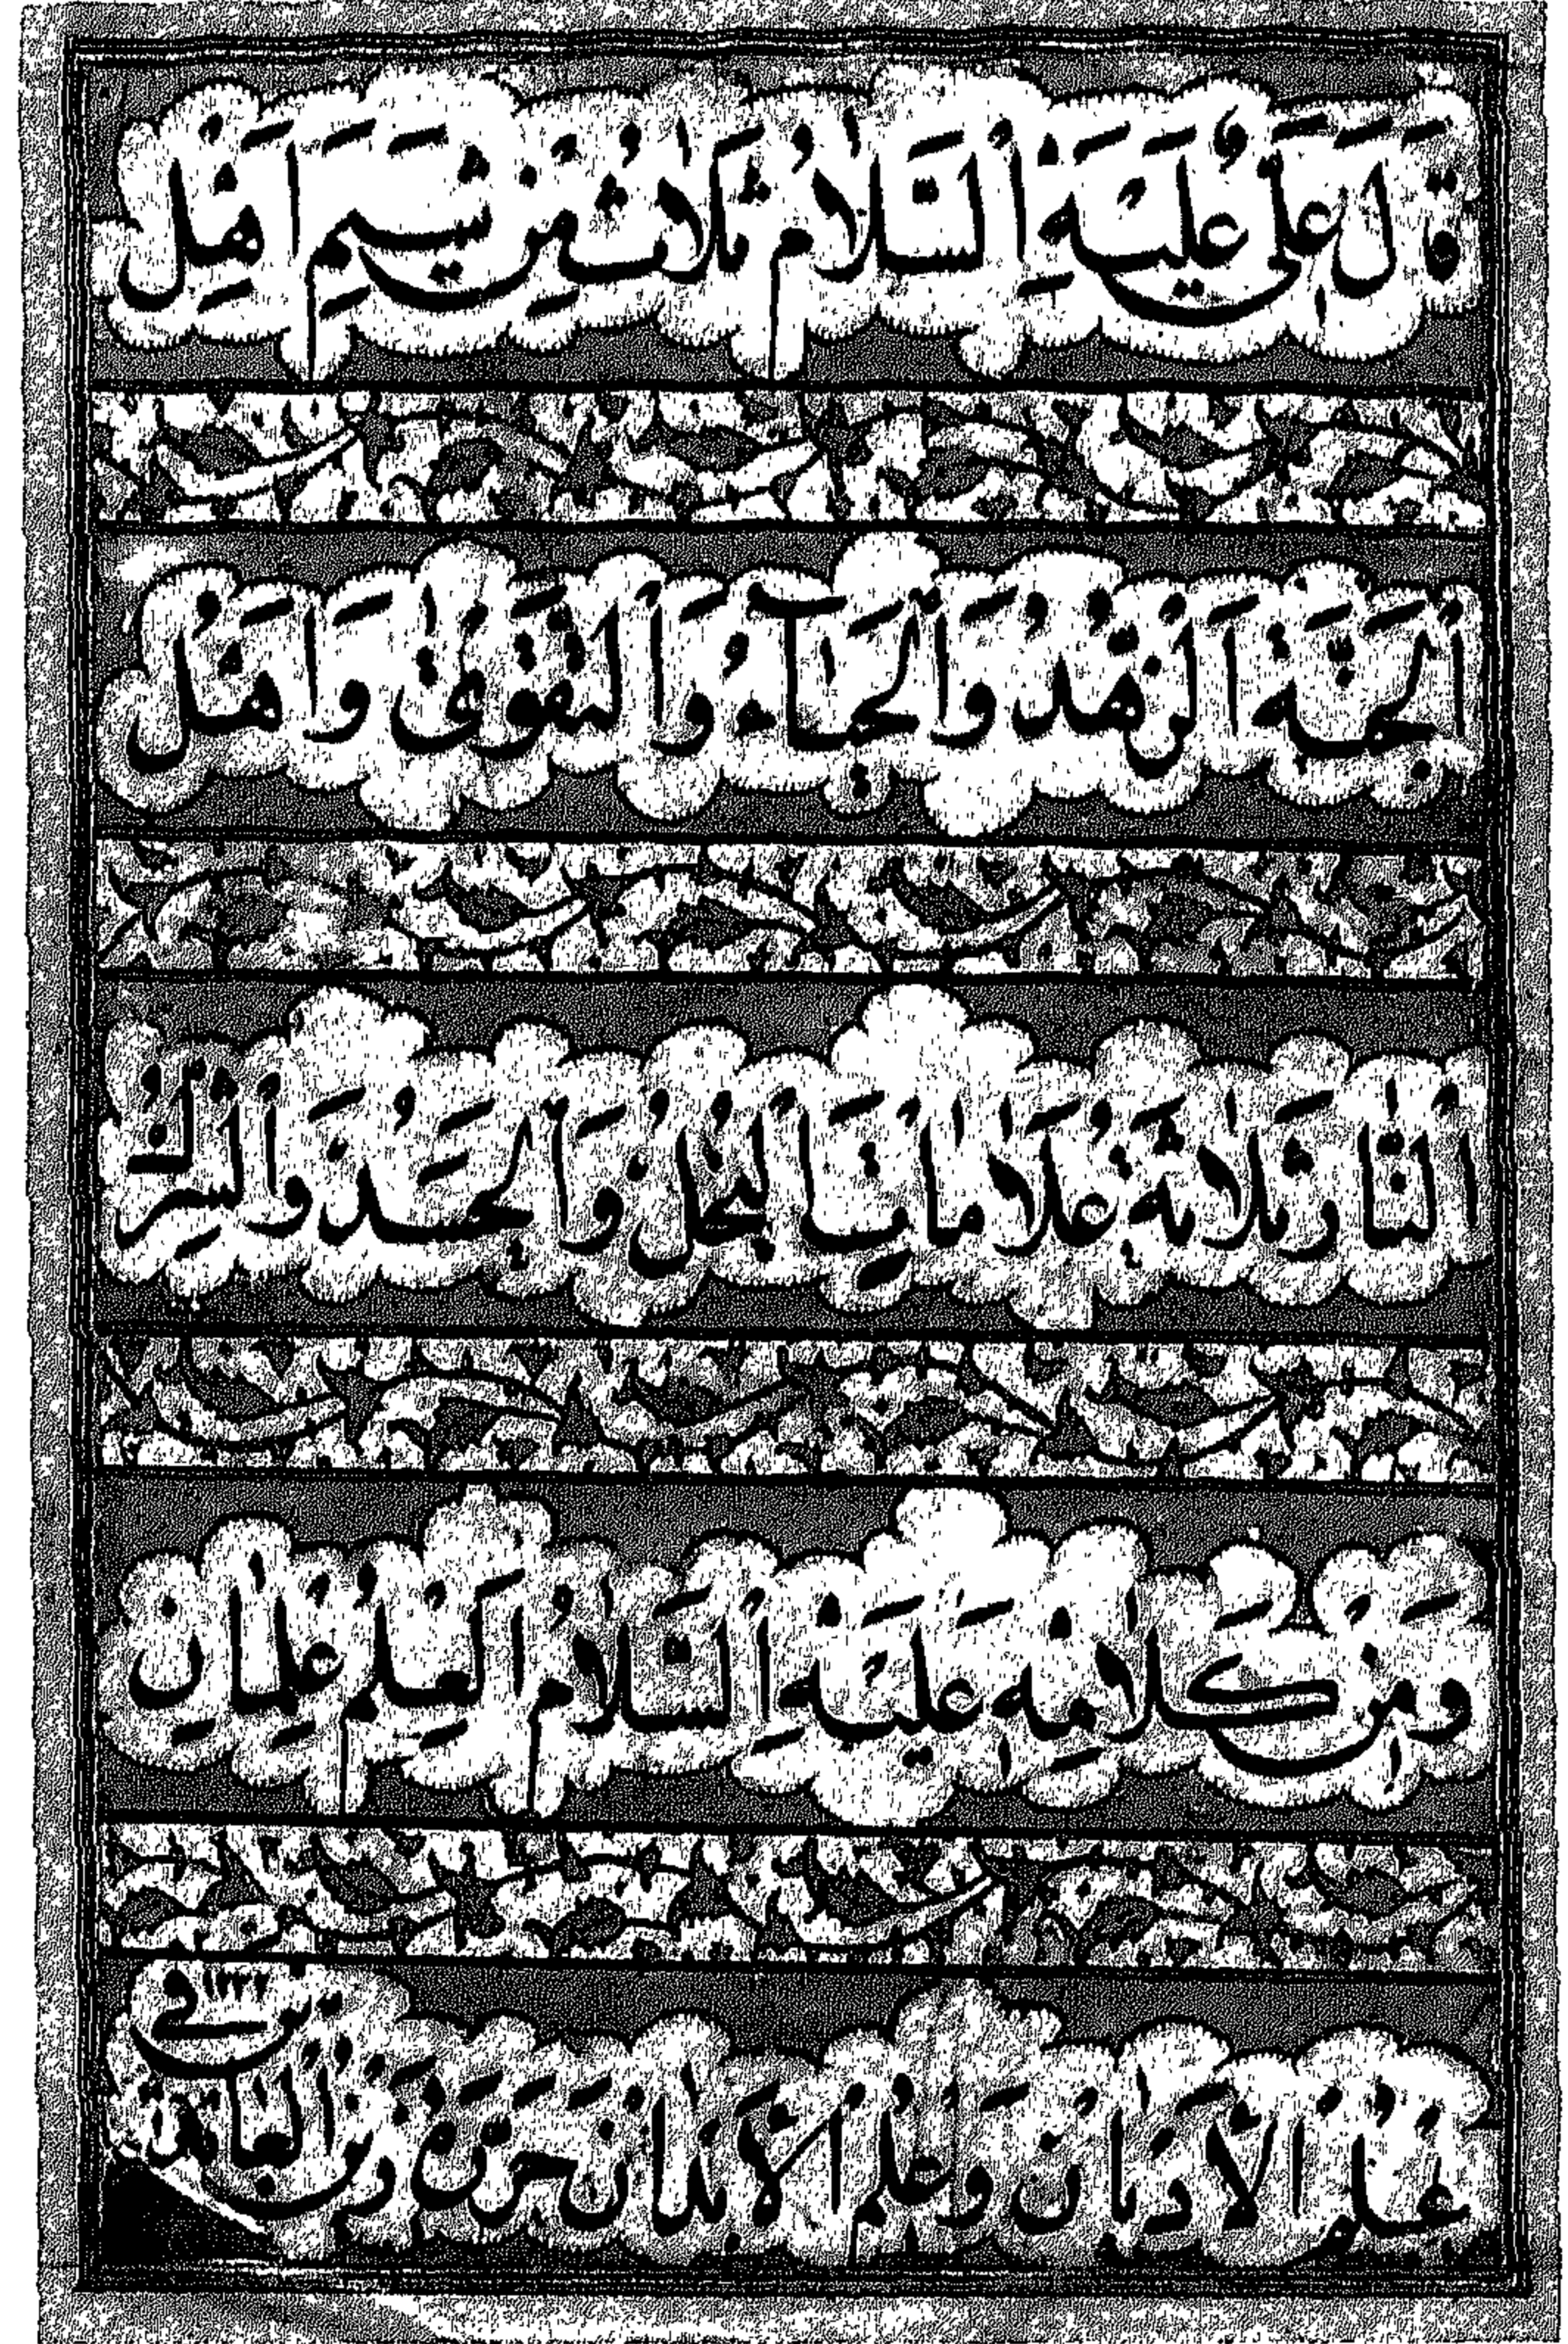 قَالَ عَلِيٌّ عَلَيْهِ السَّلَامُ ثَلَاثٌ مِنْ شِيَمِ أَهْلِ
الْجَنَّةِ الزُّهْدُ وَالْحَيَآءُ وَالتَّقْوَى وَأَهْلُ
النَّارِ ثَلَاثَةُ عَلَامَاتٍ الْبُخْلُ وَالْحَسَدُ وَالْكِبْرُ
وَمِنْ كَلَامِهِ عَلَيْهِ السَّلَامُ الْعِلْمُ عِلْمَانِ
عِلْمُ الْأَدْيَانِ وَعِلْمُ الْأَبْدَانِ حَرَّرَهُ